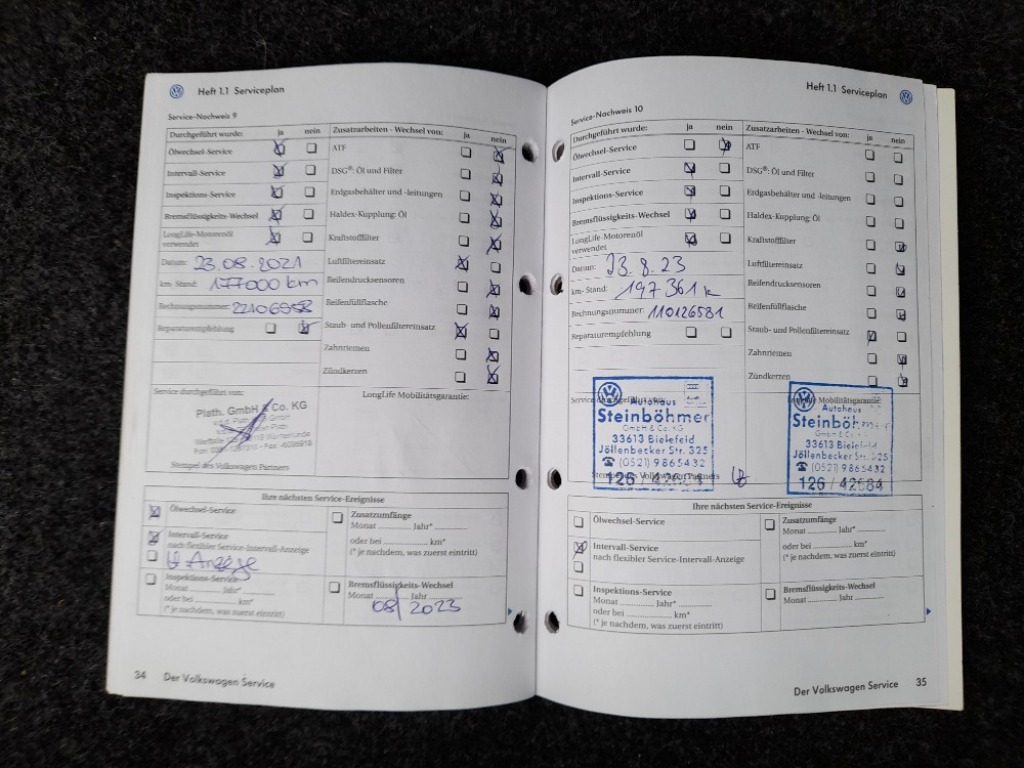 Heft 1.1 Serviceplan
Service-Nachweis 9
Durchgeführt wurde: ja nein
Ölwechsel-Service
Intervall-Service
Inspektions-Service
Bremsflüssigkeits-Wechsel
LongLife-Motorenöl
verwendet
Datum: 23.08.2021
km- Stand: 177000 km
Rechnungsnummer: 22106958
Reparaturempfehlung
Zusatzarbeiten - Wechsel von: ja nein
ATF
DSG®: Öl und Filter
Erdgasbehälter und -leitungen
Haldex-Kupplung: Öl
Kraftstofffilter
Luftfiltereinsatz
Reifendrucksensoren
Reifenfüllflasche
Staub- und Pollenfiltereinsatz
Zahnriemen
Zündkerzen
Service durchgeführt von:
Plath. GmbH & Co. KG
Stempel des Volkswagen Partners
LongLife Mobilitätsgarantie:
Ihre nächsten Service-Ereignisse
Ölwechsel-Service
Intervall-Service
nach flexibler Service-Intervall-Anzeige
Anzeige
Inspektions-Service
Monat Jahr*
oder bei km*
(* je nachdem, was zuerst eintritt)
Zusatzumfänge
Monat Jahr*
oder bei km*
(* je nachdem, was zuerst eintritt)
Bremsflüssigkeits-Wechsel
Monat Jahr
08/2023
34 Der Volkswagen Service
Heft 1.1 Serviceplan
Service-Nachweis 10
Durchgeführt wurde: ja nein
Ölwechsel-Service
Intervall-Service
Inspektions-Service
Bremsflüssigkeits-Wechsel
LongLife-Motorenöl
verwendet
Datum: 23.8.23
km- Stand: 197361 k
Rechnungsnummer: 110126581
Reparaturempfehlung
Zusatzarbeiten - Wechsel von: ja nein
ATF
DSG®: Öl und Filter
Erdgasbehälter und -leitungen
Haldex-Kupplung: Öl
Kraftstofffilter
Luftfiltereinsatz
Reifendrucksensoren
Reifenfüllflasche
Staub- und Pollenfiltereinsatz
Zahnriemen
Zündkerzen
Autohaus
Steinböhmer
GmbH & Co. KG
33613 Bielefeld
Jöllenbecker Str. 325
☎ (0521) 9865432
126 / 42684
Volkswagen Partners
Mobilitätsgarantie:
Autohaus
33613 Bielefeld
Jöllenbecker Str. 325
☎ (0521) 9865432
126 / 42684
Ihre nächsten Service-Ereignisse
Ölwechsel-Service
Intervall-Service
nach flexibler Service-Intervall-Anzeige
Inspektions-Service
Monat Jahr*
oder bei km*
(* je nachdem, was zuerst eintritt)
Zusatzumfänge
Monat Jahr*
oder bei km*
(* je nachdem, was zuerst eintritt)
Bremsflüssigkeits-Wechsel
Monat Jahr
Der Volkswagen Service 35